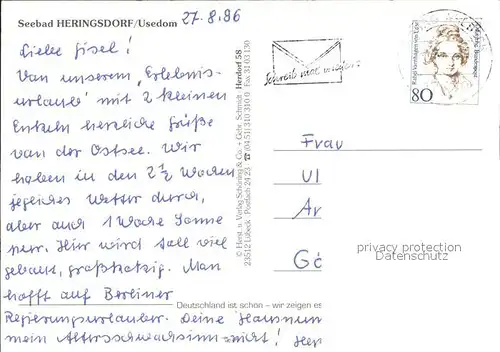 Seebad HERINGSDORF/Usedom
27.8.96
Liebe Gisel!
Von unserem „Erlebnis-
urlaub“ mit 2 kleinen
Enkeln herzliche Grüße
von der Ostsee. Wir
haben in den 2 1/2 Wochen
jegliches Wetter durch,
aber auch 1 Woche Sonne
pur. Hier wird toll viel
gebaut, großkotzig. Man
hofft auf Berliner
Regierungsurlauber. Deine
mein Altersschwachsinn nicht!
© Herst. u. Verlag Schöning & Co. + Gebr. Schmidt Herdorf 58
23512 Lübeck · Postfach 24 23 ☎ 04 51/310 310 0 Fax 31 03 130
Deutschland ist schön – wir zeigen es
Schreib mal wieder!
Rahel Varnhagen von Ense
80
Deutsche Bundespost
Frau
Ul
Ar
privacy protection
Datenschutz